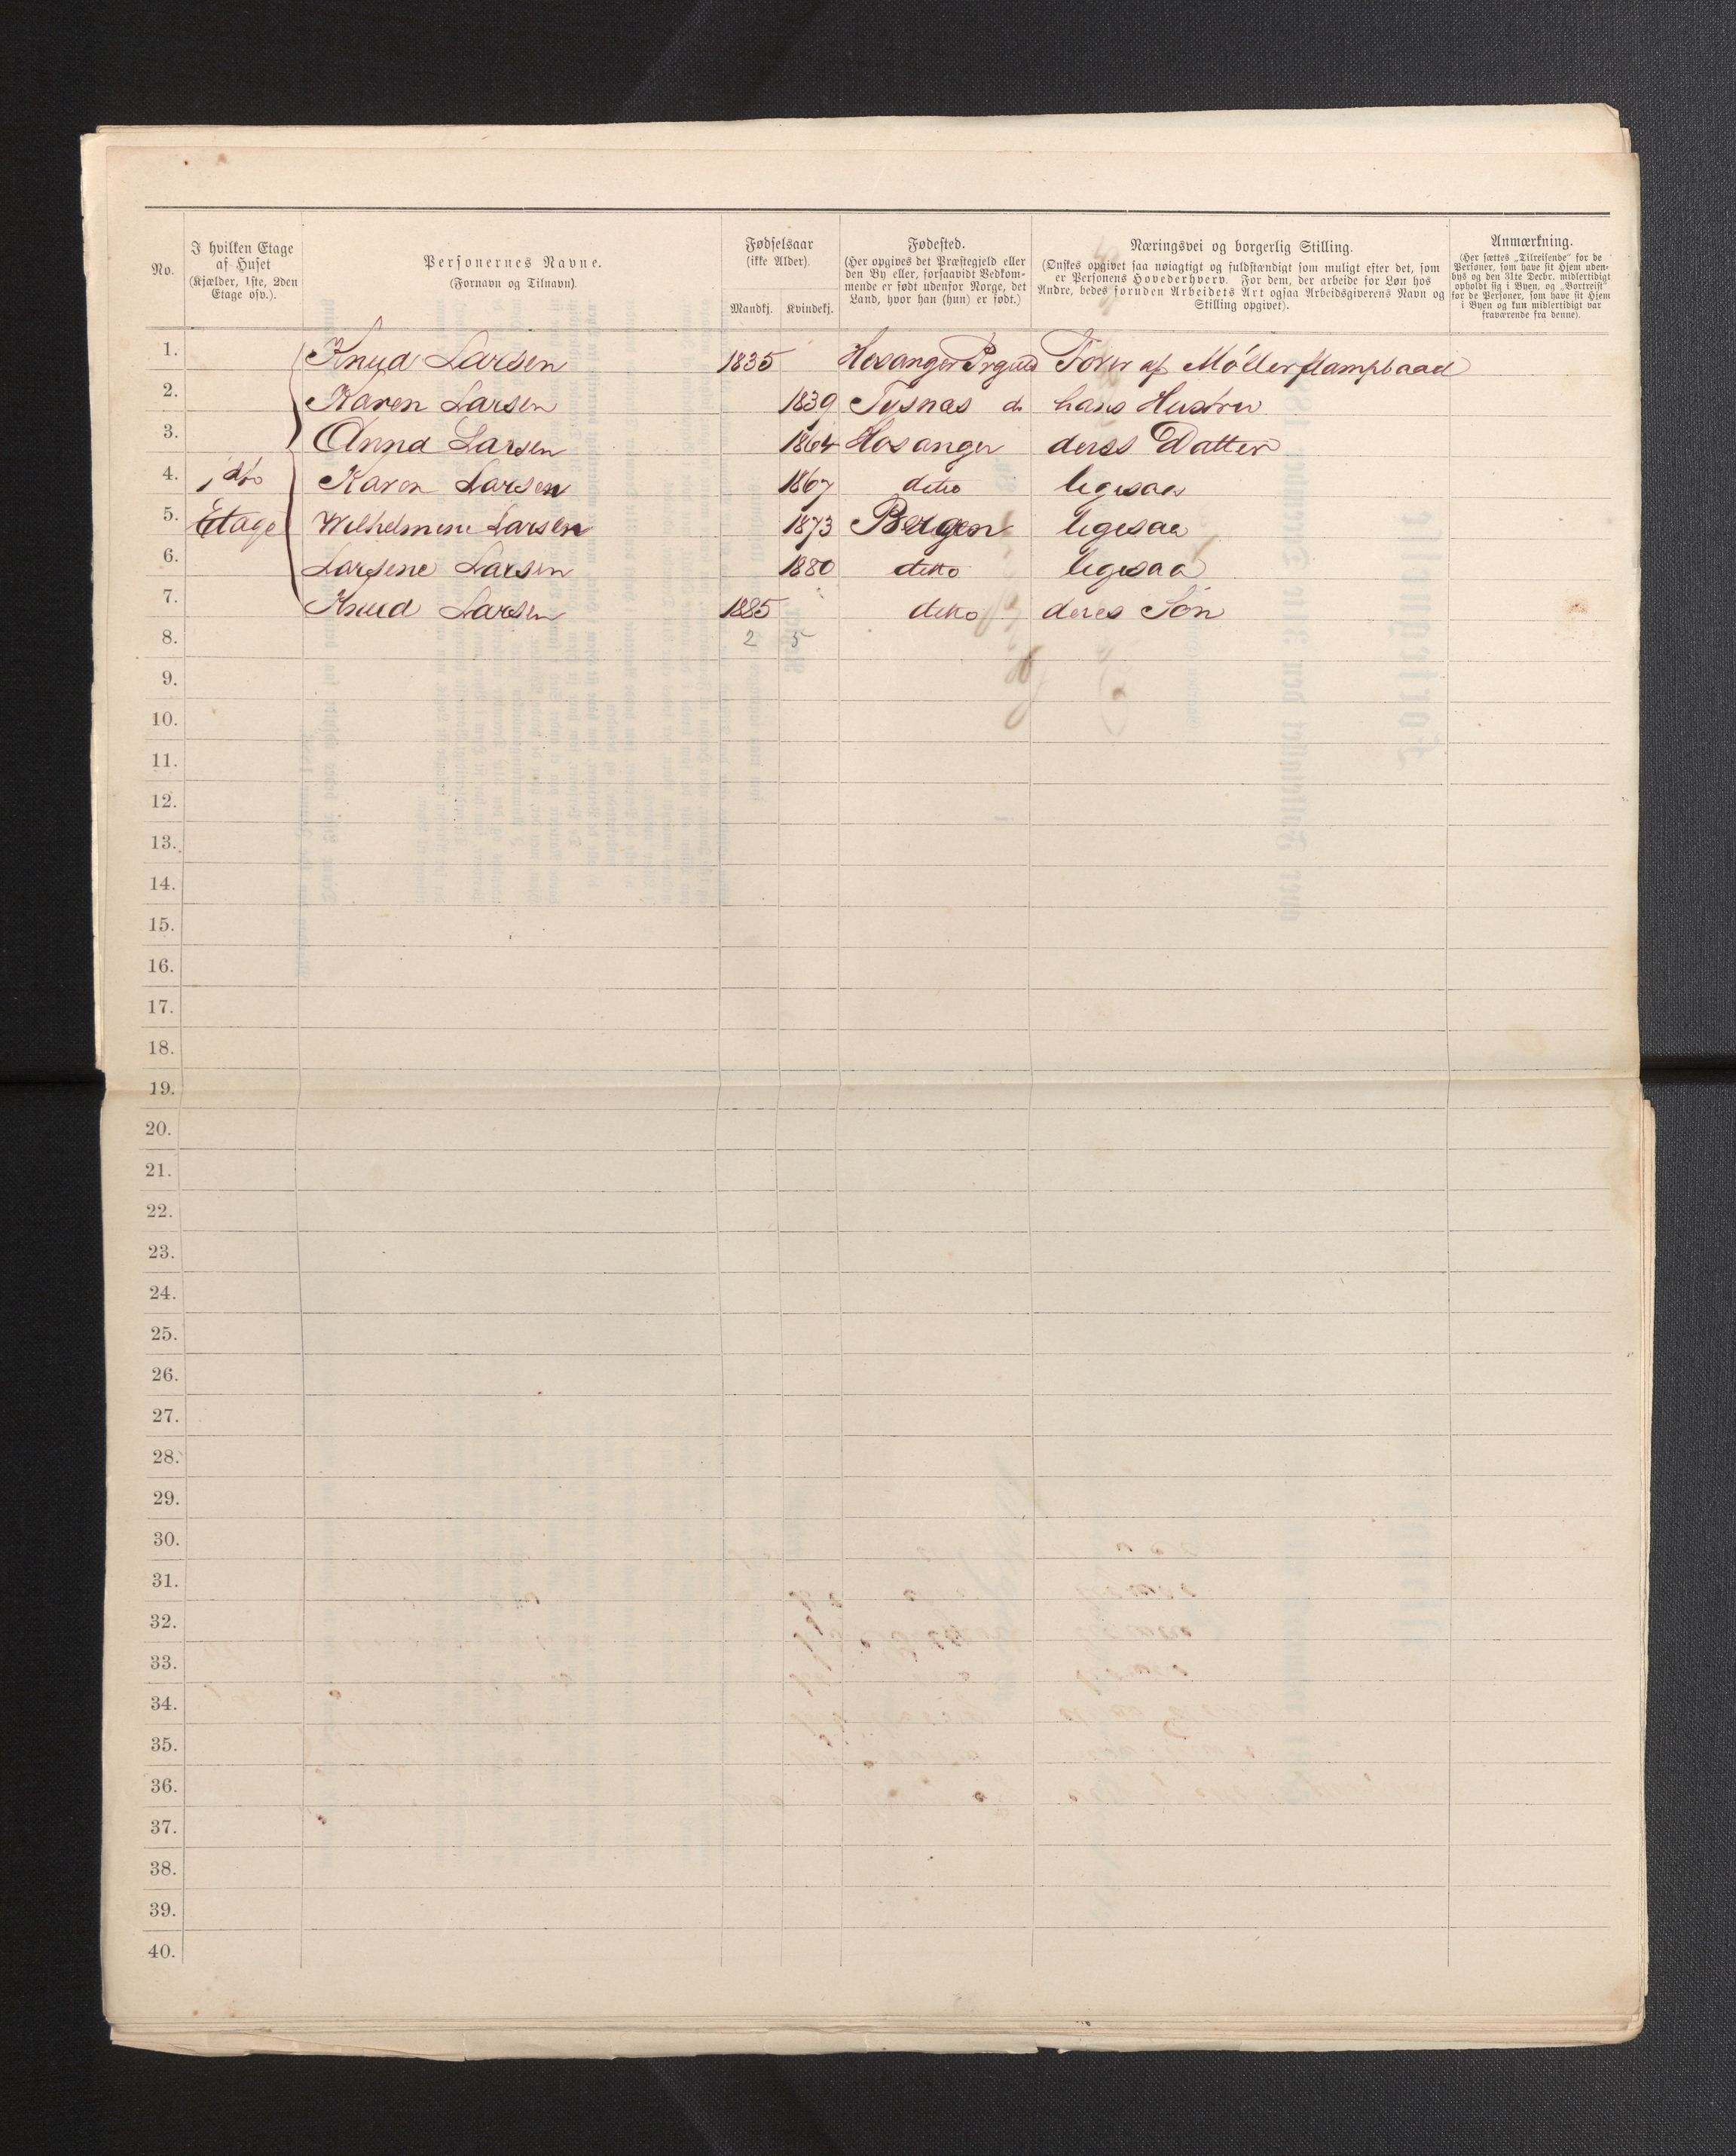 No.
I hvilken Etage af Huset (Kjælder, 1ste, 2den Etage osv.).
Personernes Navne. (Fornavn og Tilnavn).
Fødselsaar (ikke Alder).
Mandkj. Kvindekj.
Fødested. (Her opgives det Præstegjeld eller den By eller, forsaavidt Vedkommende er født udenfor Norge, det Land, hvor han (hun) er født.)
Næringsvei og borgerlig Stilling.
(Ønskes opgivet saa nøiagtigt og fuldstændigt som muligt efter det, som er Personens Hovederhverv. For dem, der arbeide for Løn hos Andre, bedes foruden Arbeidets Art ogsaa Arbeidsgiverens Navn og Stilling opgivet).
Anmærkning.
(Her sættes „Tilreisende“ for de Personer, som have sit Hjem udenbys og den 31te Decbr. midlertidigt opholdt sig i Byen, og „Bortreist“ for de Personer, som have sit Hjem i Byen og kun midlertidigt var fraværende fra denne).
1. Knud Larsen 1835 Hosanger Prgield Fører af Møllerstampbaad
2. Karen Larsen 1839 Tysnæs do hans Hustru
3. Anna Larsen 1864 Hosanger deres Datter
4. 1ste Karen Larsen 1867 detto ligesaa
5. Etage Wilhelmine Larsen 1873 Bergen ligesaa
6. Larsene Larsen 1880 detto ligesaa
7. Knud Larsen 1885 detto deres Søn
8. 2 5
9.
10.
11.
12.
13.
14.
15.
16.
17.
18.
19.
20.
21.
22.
23.
24.
25.
26.
27.
28.
29.
30.
31.
32.
33.
34.
35.
36.
37.
38.
39.
40.